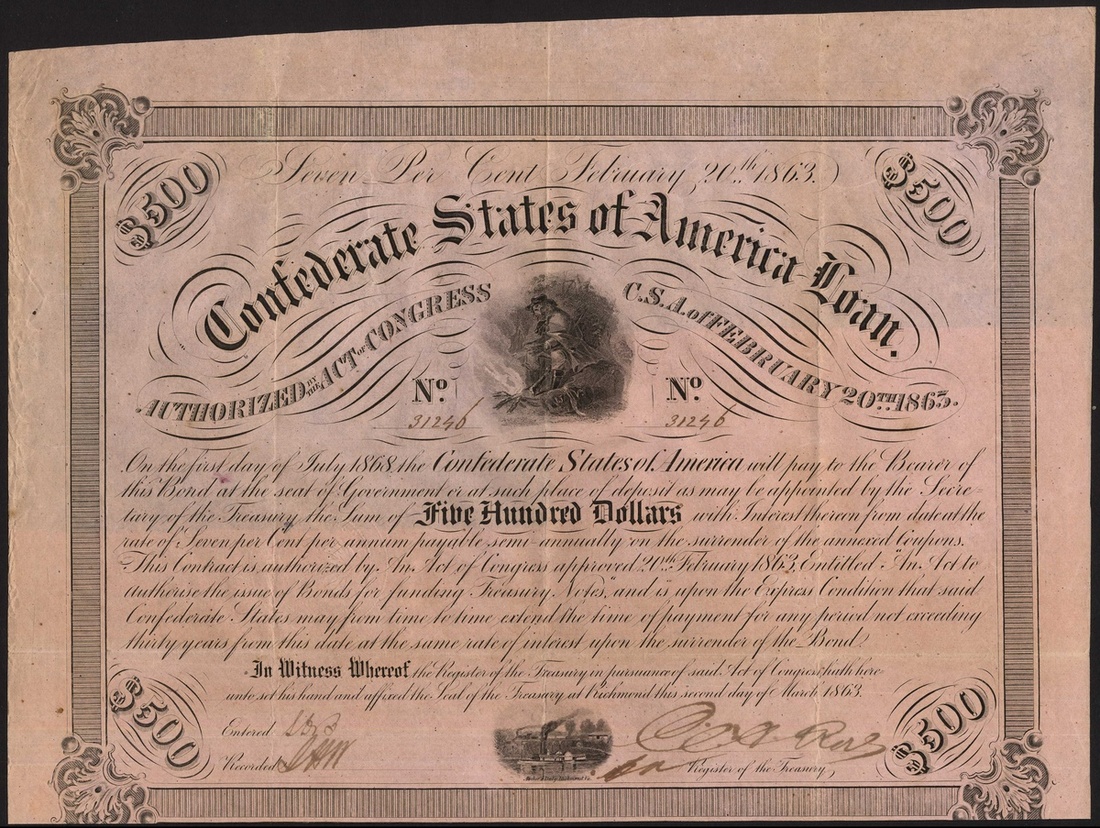 Seven Per Cent February 20th 1863
$500
$500
Confederate States of America Loan.
AUTHORIZED BY THE ACT OF CONGRESS C.S.A. of FEBRUARY 20TH 1863.
No. No.
31246 31246
On the first day of July 1868, the Confederate States of America will pay to the Bearer of
this Bond at the seat of Government or at such place of deposit as may be appointed by the Secre-
tary of the Treasury, the Sum of Five Hundred Dollars with Interest thereon from date at the
rate of Seven per Cent per annum payable semi-annually on the surrender of the annexed Coupons.
This Contract is authorized by An Act of Congress approved 20th February 1863, Entitled "An Act to
authorise the issue of Bonds for funding Treasury Notes", and is upon the Express Condition that said
Confederate States may from time to time extend the time of payment for any period not exceeding
thirty years from this date at the same rate of interest upon the surrender of the Bond.
In Witness Whereof, the Register of the Treasury in pursuance of said Act of Congress, hath here-
unto set his hand and affixed the Seal of the Treasury at Richmond this second day of March 1863.
$500
$500
Entered
Recorded
Register of the Treasury,